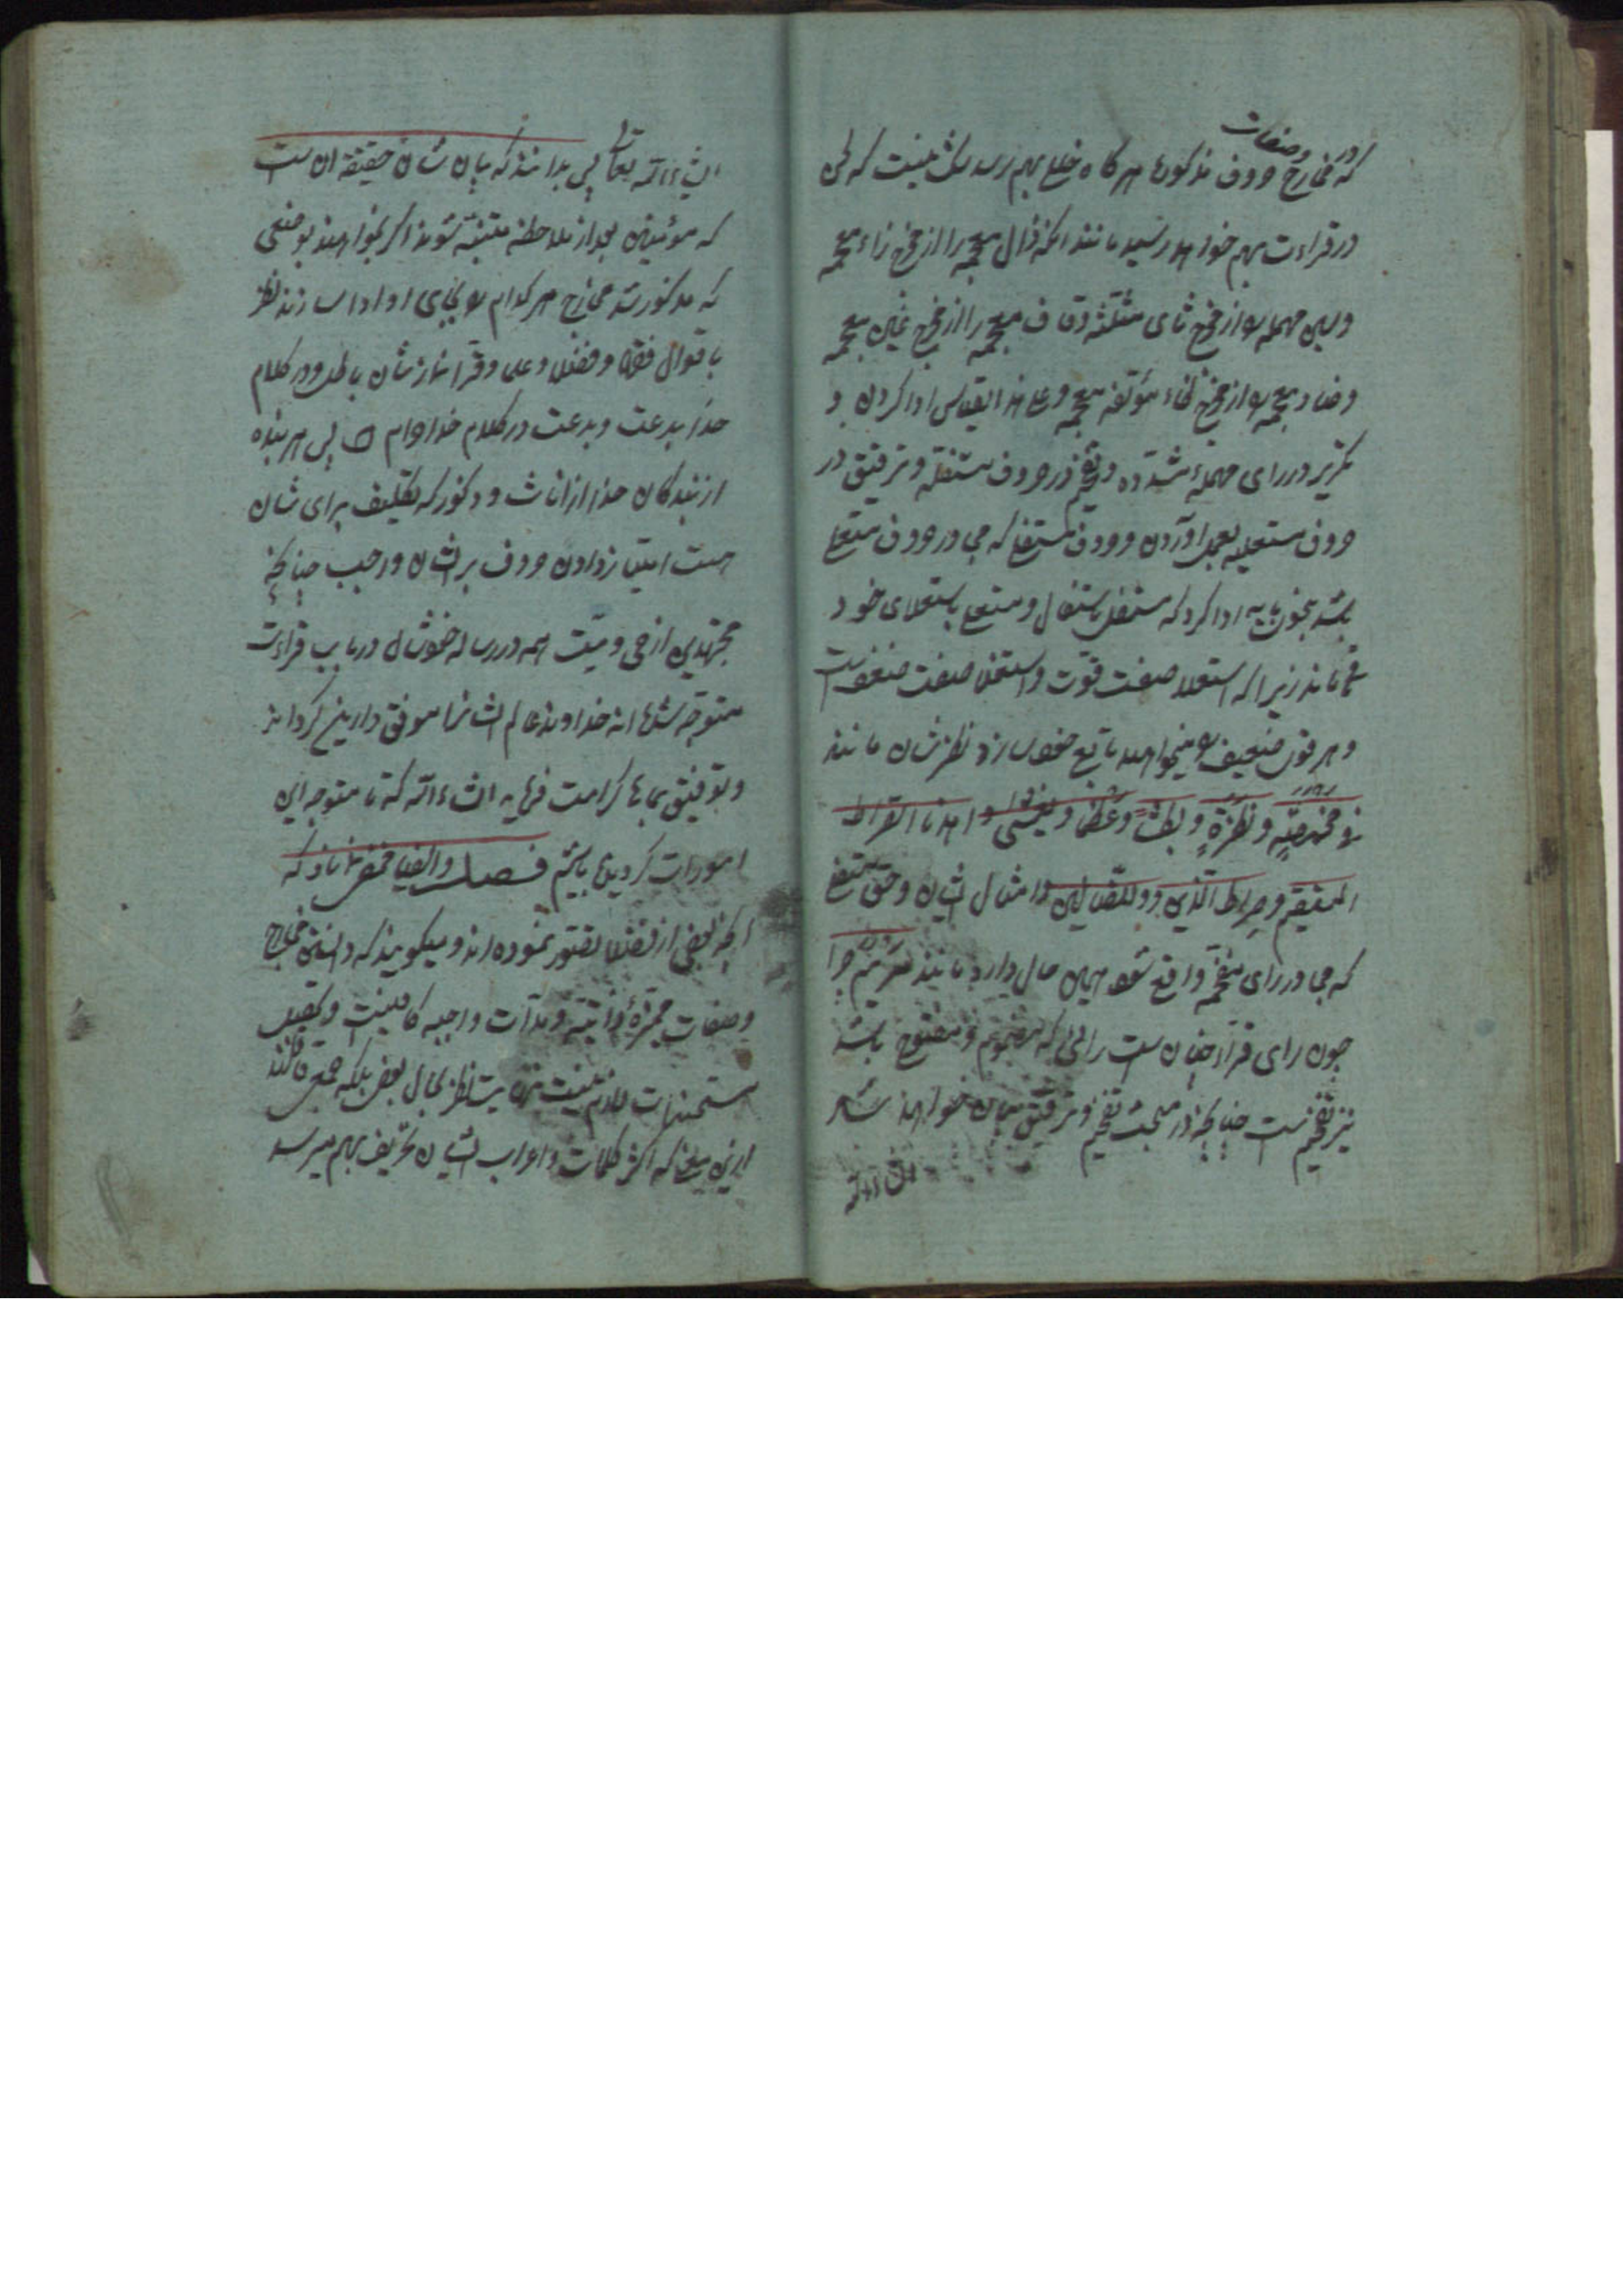 وصفات
که در مخارج حروف مذکوره هر گاه خلل بهم رسد شک نیست که لحن
در قراءت بهم خواهد رسید مانند انکه ذال معجمه را از مخرج زاء معجمه
وسین مهمله را از مخرج ثای مثلثه وقاف معجمه را از مخرج غین معجمه
وضاد معجمه را از مخرج ظاء معجمه وعلی هذا القیاس ادا کردن و
تکریر در رای مهمله مشدّده وتفخیم در حروف مستفله وترقیق در
حروف مستعلیه بعمل آوردن وحروف مستفله که جمع در حروف مستعلی
باشد باید ادا کرد که مستفل باستفال ومستعلی باستعلای خود
قایم ماند زیرا که استعلا صفت قوت واستفال صفت ضعف است
وهر قوی ضعیف را میخواهد تابع خود سازد نظرشان مانند
مخمصة ونظرة وبطش وعظما ویغشی واهدنا الصراط
المستقیم وصراط الذین وولاالضالین وامثال ایشان وحرف مستفل
که جمع در رای مفخّم واقع شود همین حال دارد مانند مریم
چون رای قرآن چنان ست رائی که مضموم ومفتوح باشد
نیز تفخیم ست چنانچه در مبحث تفخیم وترقیق بیان خواهد شد
ان شاء الله
ان شاء الله تعالی پس بدانند که بیان شان حقیقة ان ست
که مؤمنین بعد از ملاحظه متنبّه شوند اگر نخواهند بوضعی
که مذکور شد مخارج هر کدام را بجای او ادا سازند نظر
باقوال فقها وفضلا وعلما وقرا نمازشان باطل ودر کلام
خدا بدعت وبدعت در کلام خدا حرام پس هر بنده
از بندگان خدا از اناث وذکور که تکلیف برای شان
هست امتیاز دادن حروف بر ایشان واجب چنانچه
مجتهدین از حی ومیّت همه در رساله خودشان در باب قراءت
متوجه شده اند خداوند عالم ایشانرا موفق دارین گرداند
وتوفیق بما ها کرامت فرماید ان شاء الله که تا متوجه این
امورات گردیده باشیم فصل وایضا مخفی نماند که
انچه بعضی از فضلا تصور نموده اند ومیگویند که دانستن مخارج
وصفات ممیّزهٔ ذاتیّه ومدّات واجبه کافیست
مستحسنات لازم نیست نظر بحال بعض بلکه جمع قائلند
ازین معنی که اکثر کلمات واعراب ایشان تحریف بهم میرسد